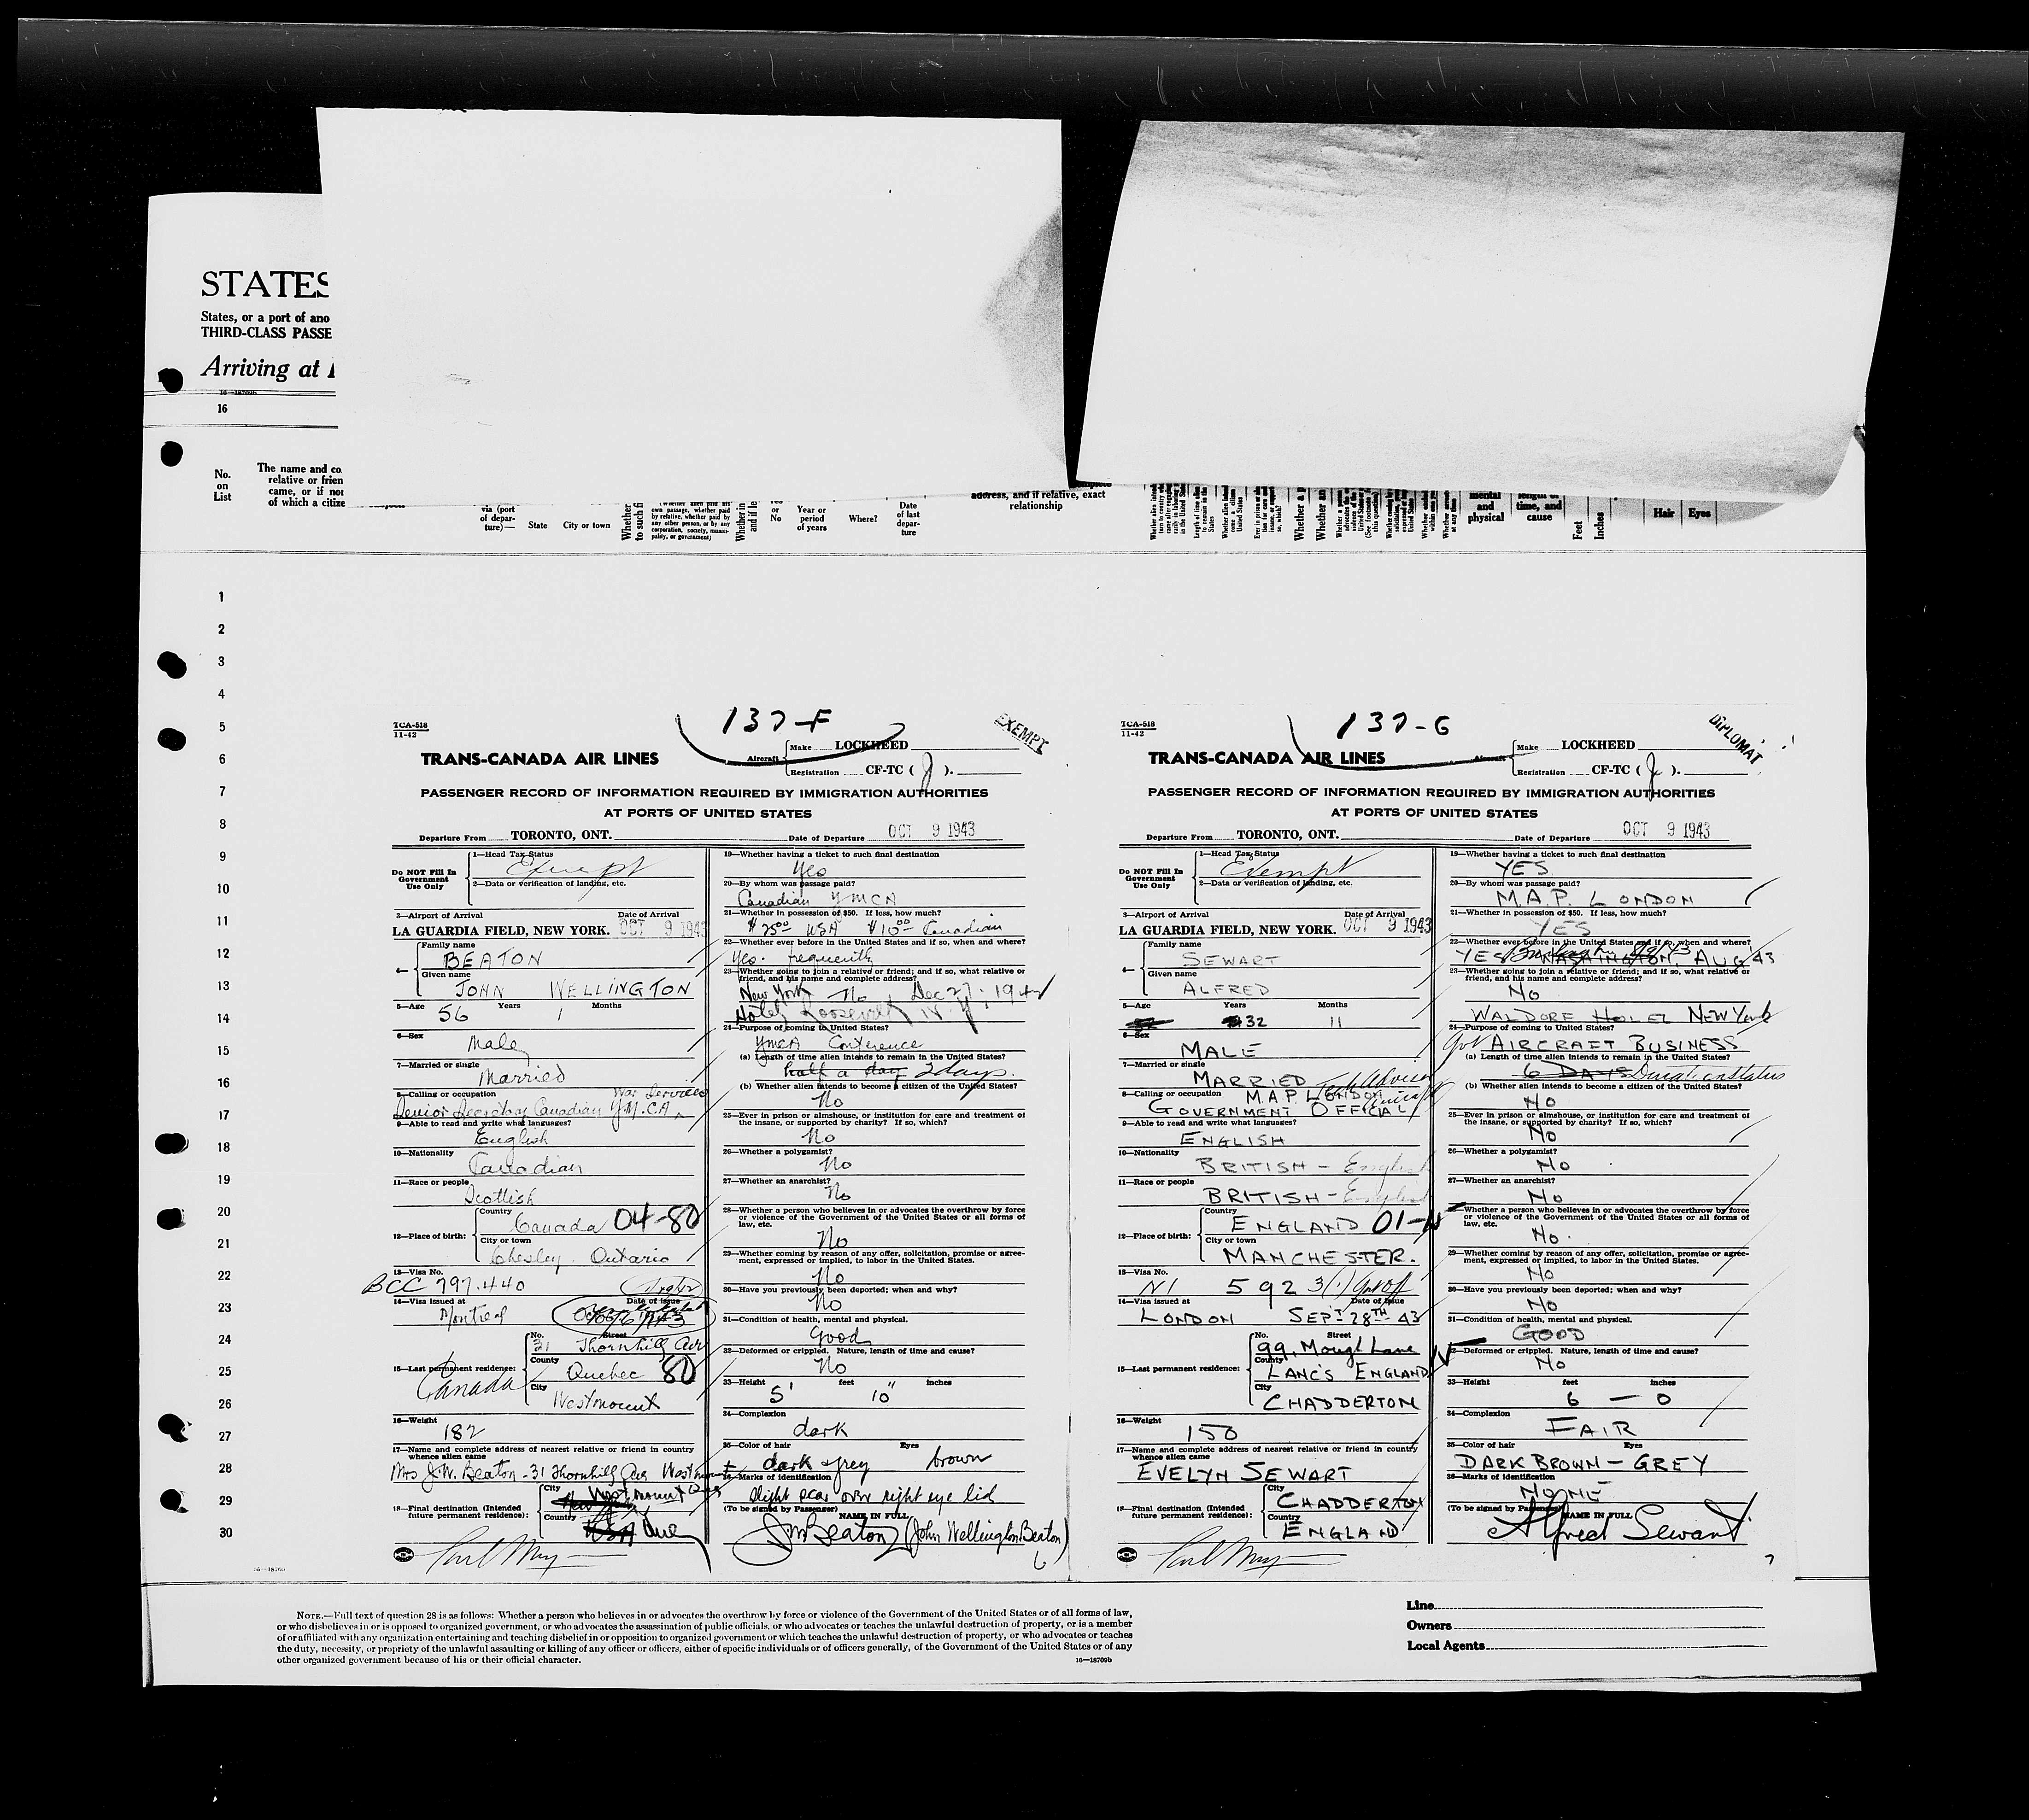 STATES
States, or a port of ano
THIRD-CLASS PASSE
Arriving at
16—18709b
16
No. on List
The name and co
relative or frien
came, or if not
of which a citize
via (port of departure)—
State
City or town
Whether
to such fi
own passage, whether paid
by relative, whether paid by
any other person, or by any
corporation, society, munici-
pality, or government)
Whether in
and if le
or No
Year or period of years
Where?
Date of last departure
address, and if relative, exact
relationship
Whether a p
Whether an
mental and physical
length of time, and cause
Feet
Inches
Hair
Eyes
1
2
3
4
5
6
7
8
9
10
11
12
13
14
15
16
17
18
19
20
21
22
23
24
25
26
27
28
29
30
TCA-518
11-42
137-F
EXEMPT
TRANS-CANADA AIR LINES
Aircraft
Make LOCKHEED
Registration CF-TC ( J ).
PASSENGER RECORD OF INFORMATION REQUIRED BY IMMIGRATION AUTHORITIES
AT PORTS OF UNITED STATES
Departure From TORONTO, ONT. Date of Departure OCT 9 1943
Do NOT Fill In Government Use Only
1—Head Tax Status
Exempt
2—Data or verification of landing, etc.
3—Airport of Arrival Date of Arrival
LA GUARDIA FIELD, NEW YORK. OCT 9 1943
4— Family name
BEATON
Given name
JOHN WELLINGTON
5—Age Years Months
56 1
6—Sex
Male
7—Married or single
Married
8—Calling or occupation War Services
Senior Secretary Canadian Y.M.C.A.
9—Able to read and write what languages?
English
10—Nationality
Canadian
11—Race or people
Scottish
12—Place of birth:
Country
Canada 04-80
City or town
Chesley Ontario
13—Visa No.
BCC 797.440
14—Visa issued at Date of Issue
Montreal
15—Last permanent residence:
Canada
No. Street
31 Thornhill Ave
County
Quebec 80
City
Westmount
16—Weight
182
17—Name and complete address of nearest relative or friend in country
whence alien came
Mrs J.W. Beaton - 31 Thornhill Ave Westmount
18—Final destination (Intended future permanent residence):
City
Westmount
Country
USA Que
19—Whether having a ticket to such final destination
Yes
20—By whom was passage paid?
Canadian YMCA
21—Whether in possession of $50. If less, how much?
$25.00 USA $10.00 Canadian
22—Whether ever before in the United States and if so, when and where?
Yes. frequently
23—Whether going to join a relative or friend; and if so, what relative or
friend, and his name and complete address?
New York No Dec 27, 194
Hotel Roosevelt N.Y.
24—Purpose of coming to United States?
YMCA Conference
(a) Length of time alien intends to remain in the United States?
half a day 2 days.
(b) Whether alien intends to become a citizen of the United States?
No
25—Ever in prison or almshouse, or institution for care and treatment of
the insane, or supported by charity? If so, which?
No
26—Whether a polygamist?
No
27—Whether an anarchist?
No
28—Whether a person who believes in or advocates the overthrow by force
or violence of the Government of the United States or all forms of
law, etc.
No
29—Whether coming by reason of any offer, solicitation, promise or agree-
ment, expressed or implied, to labor in the United States.
No
30—Have you previously been deported; when and why?
No
31—Condition of health, mental and physical.
Good
32—Deformed or crippled. Nature, length of time and cause?
No
33—Height feet inches
5' 10"
34—Complexion
dark
35—Color of hair Eyes
dark & grey brown
36—Marks of identification
slight scar over right eye lid
(To be signed by Passenger)
NAME IN FULL
JWBeaton (John Wellington Beaton)
6
TCA-518
11-42
137-G
DIPLOMAT
TRANS-CANADA AIR LINES
Aircraft
Make LOCKHEED
Registration CF-TC ( J ).
PASSENGER RECORD OF INFORMATION REQUIRED BY IMMIGRATION AUTHORITIES
AT PORTS OF UNITED STATES
Departure From TORONTO, ONT. Date of Departure OCT 9 1943
Do NOT Fill In Government Use Only
1—Head Tax Status
Exempt
2—Data or verification of landing, etc.
3—Airport of Arrival Date of Arrival
LA GUARDIA FIELD, NEW YORK. OCT 9 1943
4— Family name
SEWART
Given name
ALFRED
5—Age Years Months
32 11
6—Sex
MALE
7—Married or single
MARRIED Tech Advisor
8—Calling or occupation M.A.P. LONDON
GOVERNMENT OFFICIAL
9—Able to read and write what languages?
ENGLISH
10—Nationality
BRITISH - English
11—Race or people
BRITISH - English
12—Place of birth:
Country
ENGLAND 01-
City or town
MANCHESTER.
13—Visa No.
NI 5923
14—Visa issued at Date of Issue
LONDON SEPT 28TH 43
15—Last permanent residence:
No. Street
99, Mough Lane
County
LANC'S ENGLAND
City
CHADDERTON
16—Weight
150
17—Name and complete address of nearest relative or friend in country
whence alien came
EVELYN SEWART
18—Final destination (Intended future permanent residence):
City
CHADDERTON
Country
ENGLAND
19—Whether having a ticket to such final destination
YES
20—By whom was passage paid?
M.A.P. LONDON
21—Whether in possession of $50. If less, how much?
YES
22—Whether ever before in the United States and if so, when and where?
YES WASHINGTON AUG 43
23—Whether going to join a relative or friend; and if so, what relative or
friend, and his name and complete address?
No
WALDORF HOTEL NEW York
24—Purpose of coming to United States?
Gov AIRCRAFT BUSINESS
(a) Length of time alien intends to remain in the United States?
6 DAYS Duration status
(b) Whether alien intends to become a citizen of the United States?
No
25—Ever in prison or almshouse, or institution for care and treatment of
the insane, or supported by charity? If so, which?
No
26—Whether a polygamist?
No
27—Whether an anarchist?
No
28—Whether a person who believes in or advocates the overthrow by force
or violence of the Government of the United States or all forms of
law, etc.
No.
29—Whether coming by reason of any offer, solicitation, promise or agree-
ment, expressed or implied, to labor in the United States.
No
30—Have you previously been deported; when and why?
No
31—Condition of health, mental and physical.
GOOD
32—Deformed or crippled. Nature, length of time and cause?
No
33—Height feet inches
6 — 0
34—Complexion
FAIR
35—Color of hair Eyes
DARK BROWN - GREY
36—Marks of identification
NONE
(To be signed by Passenger)
NAME IN FULL
Alfred Sewart
7
NOTE.—Full text of question 28 is as follows: Whether a person who believes in or advocates the overthrow by force or violence of the Government of the United States or of all forms of law,
or who disbelieves in or is opposed to organized government, or who advocates the assassination of public officials, or who advocates or teaches the unlawful destruction of property, or is a member
of or affiliated with any organization entertaining and teaching disbelief in or opposition to organized government or which teaches the unlawful destruction of property, or who advocates or teaches
the duty, necessity, or propriety of the unlawful assaulting or killing of any officer or officers, either of specific individuals or of officers generally, of the Government of the United States or of any
other organized government because of his or their official character.
16—18709b
Line
Owners
Local Agents